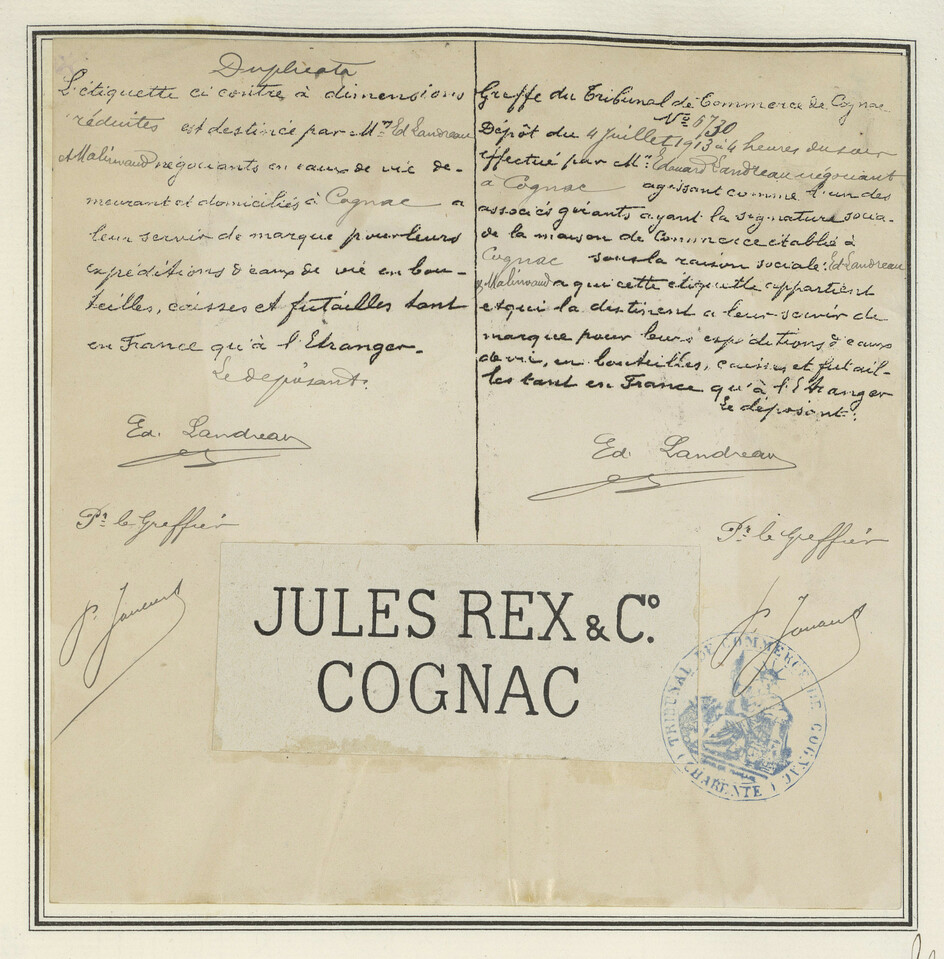 Duplicata
L'étiquette ci contre à dimensions
réduites est destinée par Mrs Ed Landreau
& Malinvaud négociants en eaux de vie de-
meurant et domiciliés à Cognac a
leur servir de marque pour leurs
expéditions d'eaux de vie en bou-
teilles, caisses et futailles tant
en France qu'à l'Etranger.
Le déposant.
Ed. Landreau
Pr le Greffier
Greffe du Tribunal de Commerce de Cognac
No 6730
Dépôt du 4 Juillet 1913 à 4 heures du soir
effectué par Mr. Edouard Landreau négociant
à Cognac agissant comme l'un des
associés gérants ayant la signature socia-
de la maison de Commerce établie à
Cognac sous la raison sociale: Ed Landreau
& Malinvaud a qui cette étiquette appartient
et qui la destinent a leur servir de
marque pour leurs expéditions d'eaux
de vie, en bouteilles, caisses et futail-
les tant en France qu'à l'Etranger
Le déposant:
Ed. Landreau
Pr le Greffier
JULES REX & Co.
COGNAC
TRIBUNAL DE COMMERCE DE COGNAC
(CHARENTE)